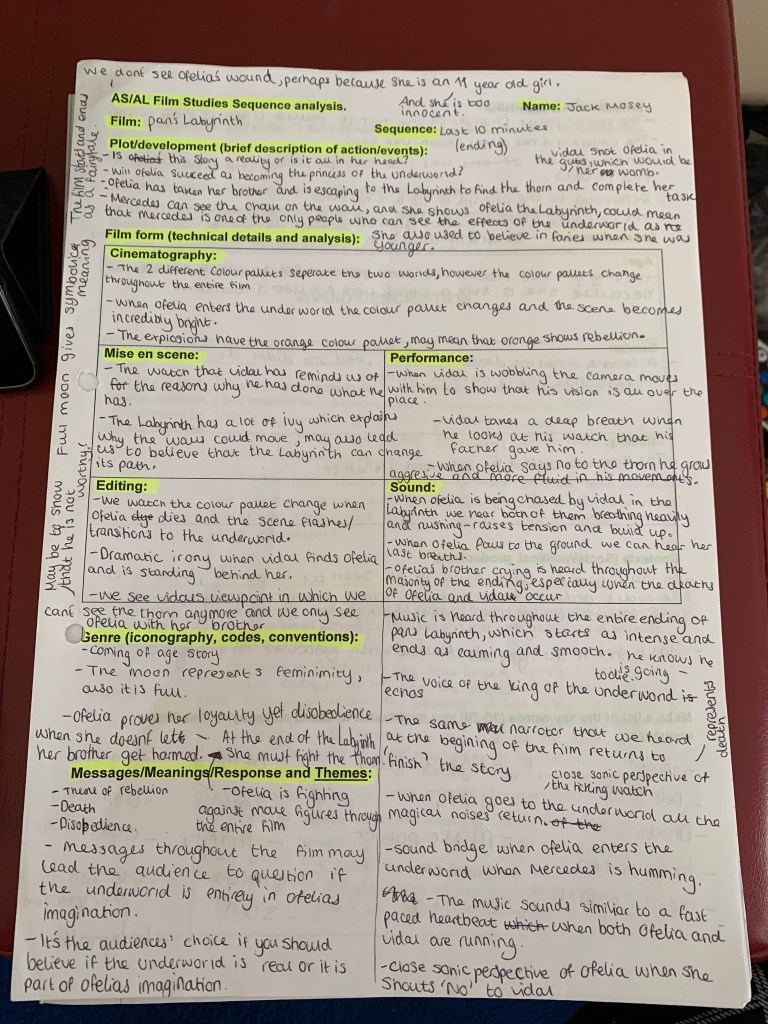 We dont see Ofelia's wound, perhaps because she is an 11 year old girl.
And she is too
innocent.
AS/AL Film Studies Sequence analysis.
Name: Jack Mosey
Film: pan's Labyrinth
Sequence: Last 10 minutes
(ending)
Plot/development (brief description of action/events):
- Is ofelias this story a reality or is it all in her head?
- Will ofelia succeed as becoming the princess of the underworld?
- Ofelia has taken her brother and is escaping to the Labyrinth to find the thorn and complete her task
- Mercedes can see the chalk on the wall, and she shows ofelia the Labyrinth, could mean
that mercedes is one of the only people who can see the effects of the underworld as
She also used to believe in faries when she was
younger.
vidal shot ofelia in
the guts, which would be
her womb.
The film start and ends
as a fairytale
Full moon gives symbolica
meaning
May be to show
that he is not
worthy?
Film form (technical details and analysis):
Cinematography:
- The 2 different colour pallets seperate the two words, however the colour pallets change
throughout the entire film
- When ofelia enters the underworld the colour pallet changes and the scene becomes
incredibly bright.
- The explosions have the orange colour pallet, may mean that orange shows rebellion.
Mise en scene:
- The watch that vidal has reminds us of
for the reasons why he has done what he
has.
- The Labyrinth has a lot of ivy which explains
why the walls could move, may also lead
us to believe that the Labyrinth can change
its path.
Performance:
- When vidal is wobbling the camera moves
with him to show that his vision is all over the
place.
- Vidal takes a deap breath when
he looks at his watch that his
father gave him.
- When ofelia says no to the thorn he grows
aggresive and more fluid in his movements.
Editing:
- We watch the colour pallet change when
Ofelia dye dies and the scene flashes/
transitions to the underworld.
- Dramatic irony when vidal finds ofelia
and is standing behind her.
- We see vidals viewpoint in which we
cant see the thorn anymore and we only see
ofelia with her brother
Sound:
- When ofelia is being chased by vidal in the
Labyrinth we hear both of them breathing heavily
and rushing - raises tension and build up.
- When Ofelia falls to the ground we can hear her
last breaths.
- Ofelias brother crying is heard throughout the
majority of the ending, especially when the deaths
of Ofelia and vidal occur
- Music is heard throughout the entire ending of
pans Labyrinth, which starts as intense and
ends as calming and smooth.
he knows he
is going
to die.
- The voice of the king of the underword is
echos
- The same narrator that we heard
at the begining of the film returns to
'finish' the story
close sonic perspective of
the ticking watch
represents
death
- When ofelia goes to the underworld all the
magical noises return. of the
- sound bridge when ofelia enters the
underworld when Mercedes is humming.
- The music sounds similiar to a fast
paced heartbeat which when both Ofelia and
vidal are running.
- Close sonic perspective of Ofelia when she
shouts 'No' to vidal
Genre (iconography, codes, conventions):
- Coming of age story
- The moon represent's feminimity,
also it is full.
- Ofelia proves her loyaulty yet disobedience
when she doesn't lett
her brother get harmed.
- At the end of the Labyrinth
She must fight the thorn
Messages/Meanings/Response and Themes:
- Theme of rebellion
- Death
- Disobedience.
- Ofelia is fighting
against male figures through
the entire film
- Messages throughout the film may
lead the audience to question if
the underworld is entirely in ofelias
imagination.
- It's the audiences' choice if you should
believe if the underworld is real or it is
part of ofelias imagination.